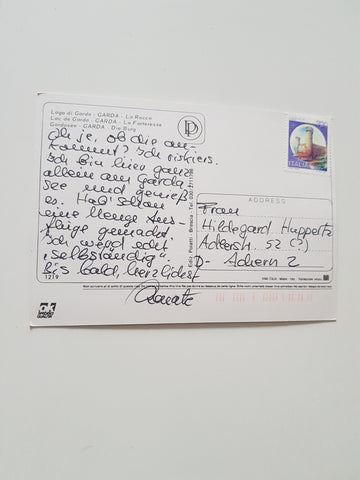 Lago di Garda - GARDA - La Rocca
Lac de Garda - GARDA - La Forteresse
Gardasee - GARDA - Die Burg
Oh je, ob die an-
kommt? Ich riskiers.
Ich bin hier ganz
allein am Garda
See und genieß
es. Hab' schon
eine Menge Aus-
flüge gemacht.
Ich werd echt
"selbständig".
Bis bald, herzlichst
Renate
1219
ITALIA
ADDRESS
Frau
Hildegard Huppertz
Adlerstr. 52 (?)
D- Achern 2